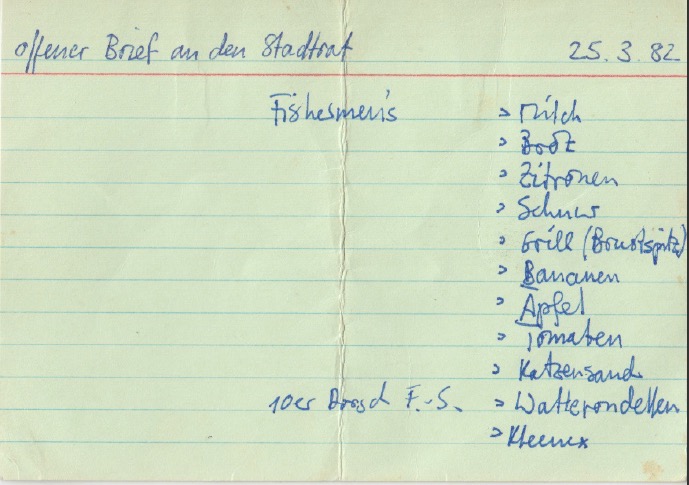 offener Brief an den Stadtrat 25.3.82
Fishesmen's > Milch
> Brot
> Zitronen
> Schnur
> Grill (Brustspitz)
> Bananen
> Äpfel
> Tomaten
> Katzensand
10er F.-S. > Watterondellen
> Kleenex